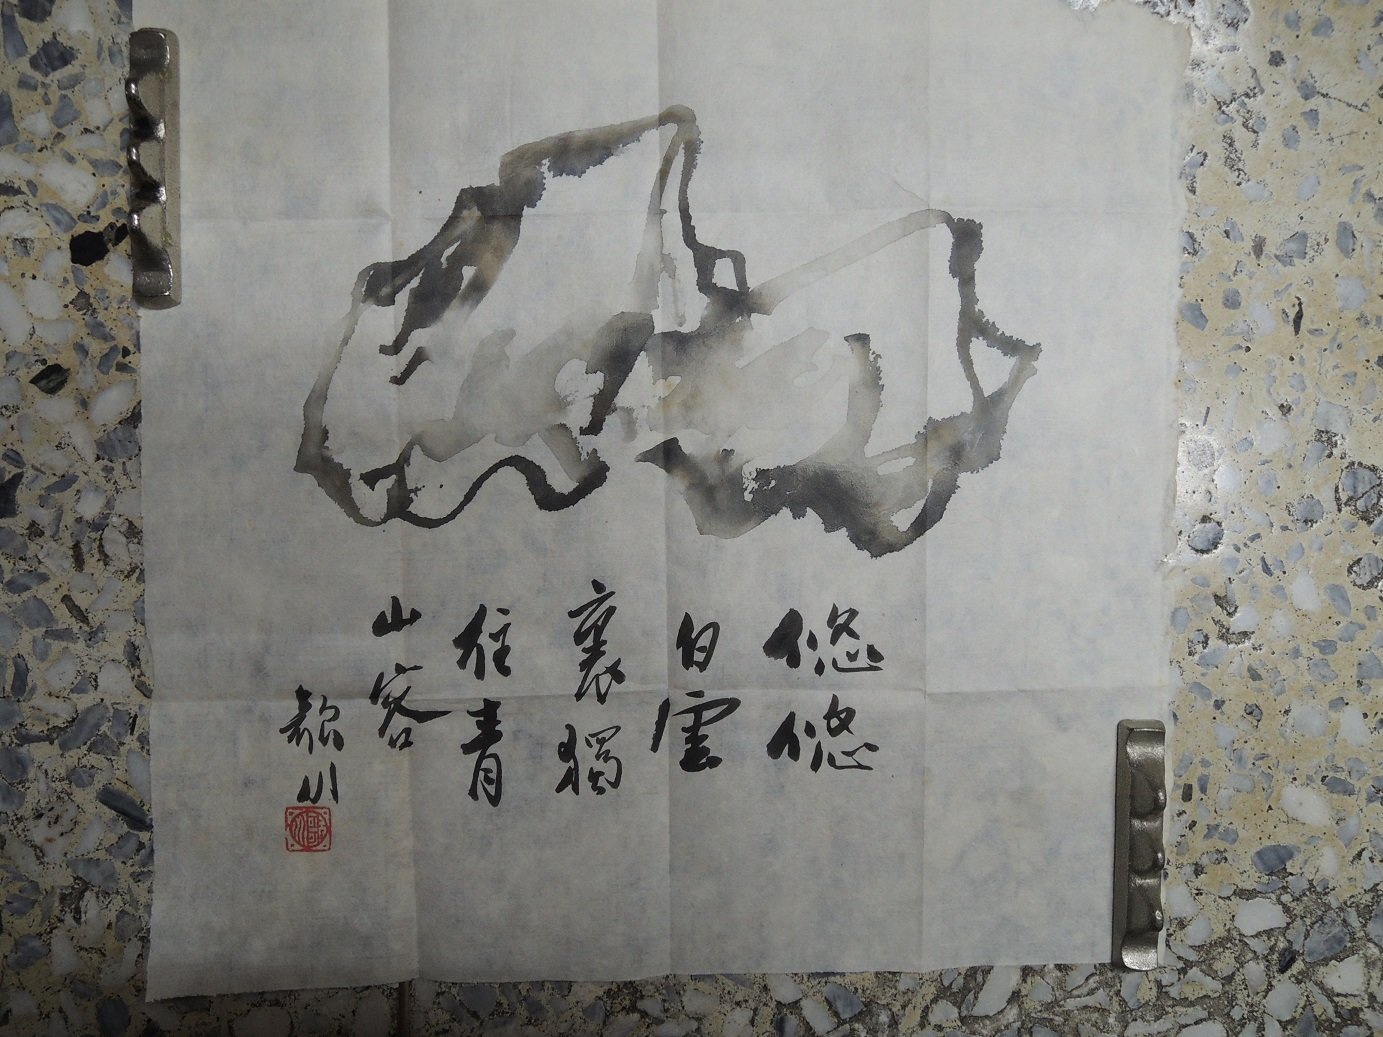 悠悠
白雲
裏獨
住青
山客
川